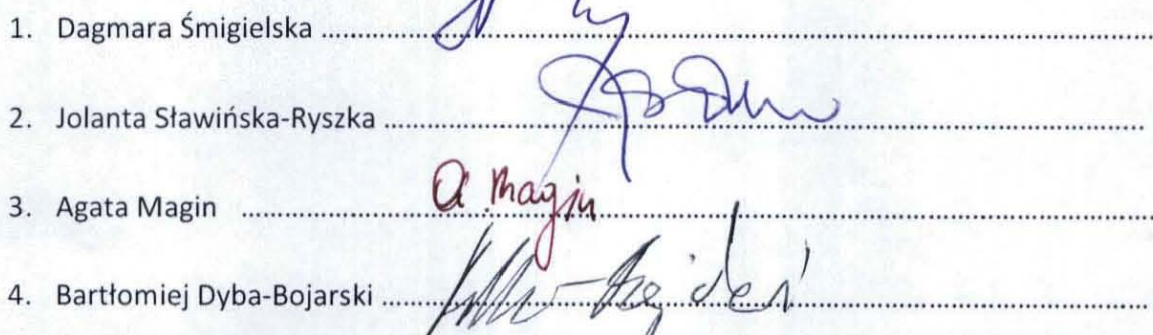 1. Dagmara Śmigielska ........................................
2. Jolanta Sławińska-Ryszka ........................................
3. Agata Magin ........................................ a. Magin
4. Bartłomiej Dyba-Bojarski ........................................